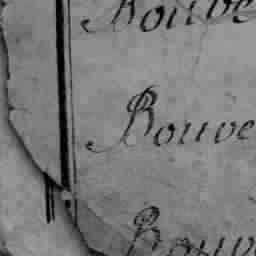 Bouve
Bouve
Bouv